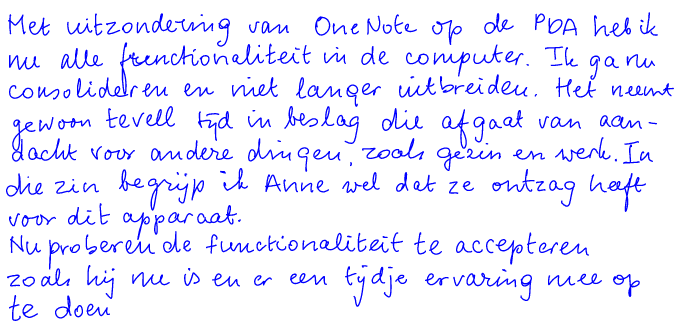 Met uitzondering van OneNote op de PDA heb ik
nu alle functionaliteit in de computer. Ik ga nu
consolideren en niet langer uitbreiden. Het neemt
gewoon teveel tijd in beslag die afgaat van aan-
dacht voor andere dingen, zoals gezin en werk. In
die zin begrijp ik Anne wel dat ze ontzag heeft
voor dit apparaat.
Nu proberen de functionaliteit te accepteren
zoals hij nu is en er een tijdje ervaring mee op
te doen